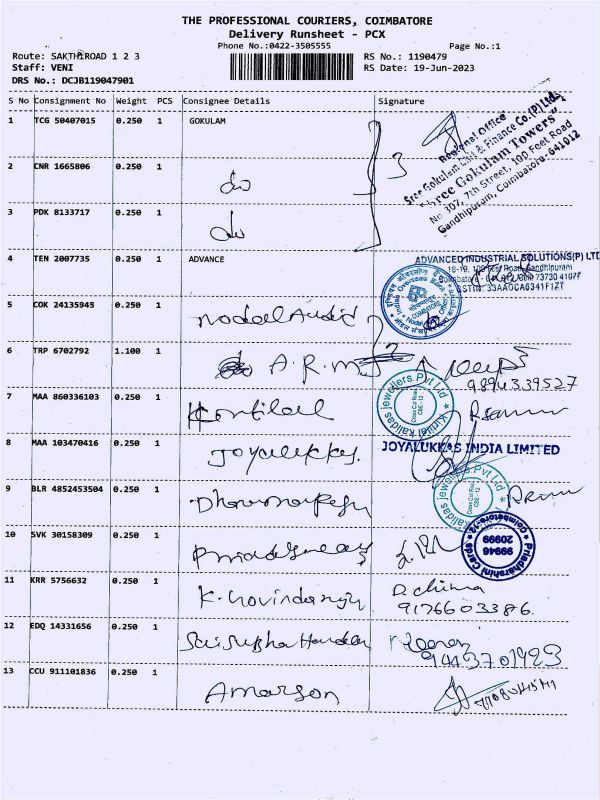 THE PROFESSIONAL COURIERS, COIMBATORE
Delivery Runsheet - PCX
Phone No.:0422-3505555 Page No.:1
Route: SAKTHIROAD 1 2 3 RS No.: 1190479
Staff: VENI RS Date: 19-Jun-2023
DRS No.: DCJB119047901
S No Consignment No Weight PCS Consignee Details Signature
1 TCG 50407015 0.250 1 GOKULAM
3
Regional Office
Sree Gokulam Chit & Finance Co.(P) Ltd.
"Shree Gokulam Towers"
No 307, 7th Street, 100 Feet Road
Gandhipuram, Coimbatore-641012
2 CNR 1665806 0.250 1 do
3 PDK 8133717 0.250 1 do
4 TEN 2007735 0.250 1 ADVANCE
ADVANCED INDUSTRIAL SOLUTIONS(P) LTD
Gandhipuram
GSTIN: 33AAOCA6341F1ZY
Indian Overseas Bank
COIMBATORE
5 COK 24135945 0.250 1 Nodal Audit
6 TRP 6702792 1.100 1 A.R.M
9894339527
7 MAA 860336103 0.250 1 Kirtilal
Kirtilal Kalidas Jewellers.Pvt Ltd
Cross Cut Road
CBE - 12
8 MAA 103470416 0.250 1 Joyalukkas.
JOYALUKKAS INDIA LIMITED
9 BLR 4852453504 0.250 1
Kalidas Jewellers.Pvt Ltd
Cross Cut Road
CBE - 12
10 SVK 30158309 0.250 1
Priadharshini Cards
99946
20999
Coimbatore-12
11 KRR 5756632 0.250 1 K. Govindaraju
9176603386.
12 EDQ 14331656 0.250 1
9443701923
13 CCU 911101836 0.250 1 Amarson